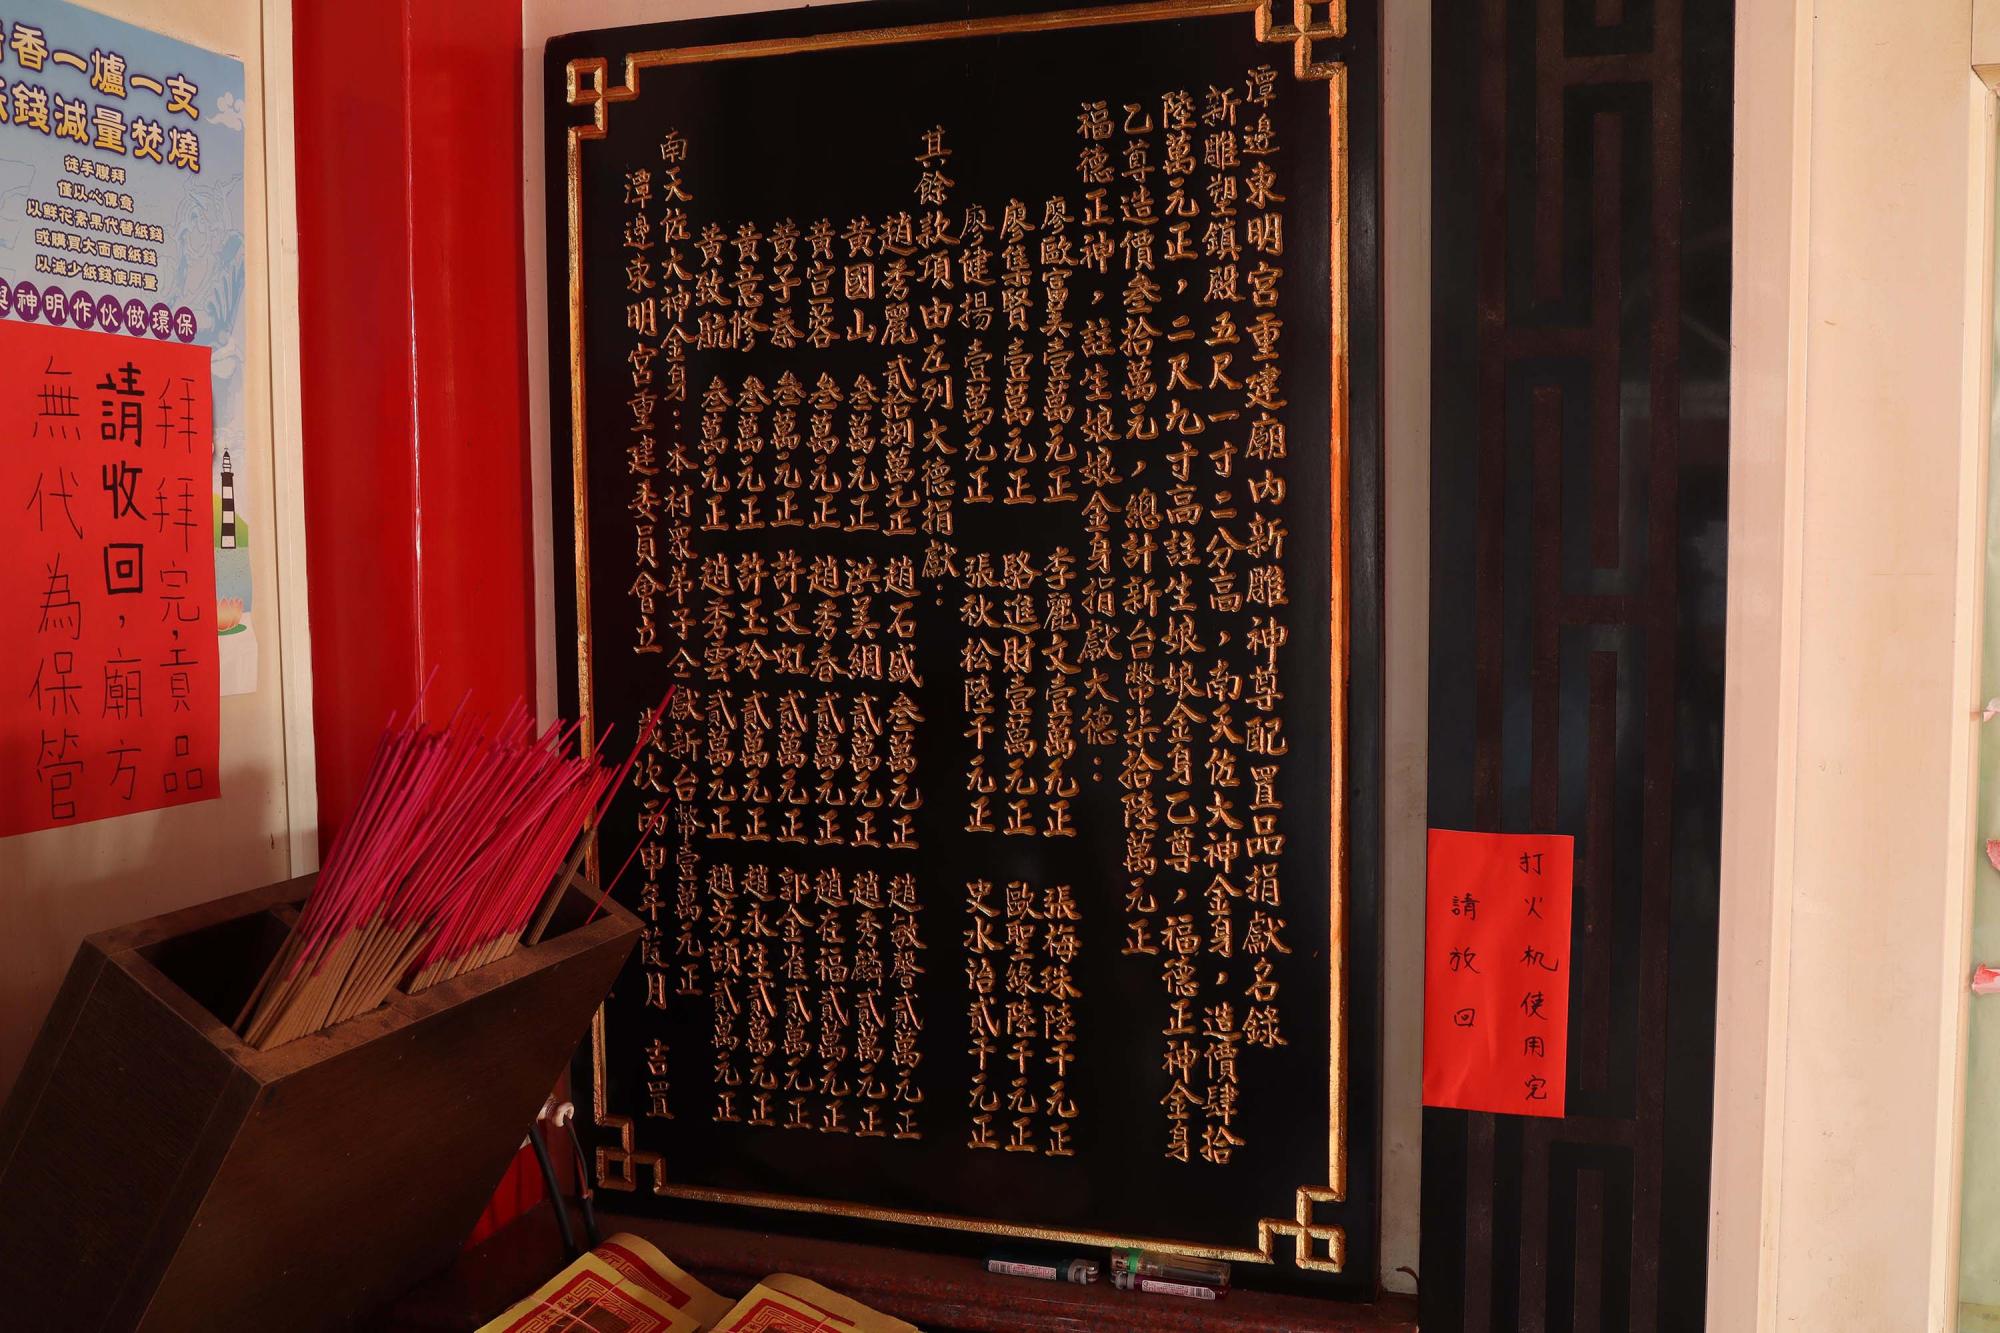 香一爐一支
錢減量焚燒
徒手膜拜
僅以心傳意
以鮮花素果代替紙錢
或購買大面額紙錢
以減少紙錢使用量
與神明作伙做環保
拜拜完,貢品
請收回,廟方
無代為保管
潭邊東明宮重建廟內新雕神尊配置品捐獻名錄
新雕塑鎮殿五尺一寸二分高,南天佐大神金身,造價肆拾
陸萬元正,二尺九寸高註生娘娘金身乙尊,福德正神金身
乙尊造價叁拾萬元,總計新台幣柒拾陸萬元正
福德正神,註生娘娘金身捐獻大德:
廖歐富美壹萬元正 李麗文壹萬元正 張梅珠陸千元正
廖集賢壹萬元正 駱進財壹萬元正 歐聖錄陸千元正
廖健揚壹萬元正 張秋松陸千元正 史水治貳千元正
其餘款項由左列大德捐獻:
趙秀麗貳拾捌萬元正 趙石盛叁萬元正 趙敏馨貳萬元正
黃國山叁萬元正 洪美綢貳萬元正 趙秀麟貳萬元正
黃宣蓉叁萬元正 趙秀春貳萬元正 趙在福貳萬元正
黃子秦叁萬元正 許文虹貳萬元正 郭金雀貳萬元正
黃意修叁萬元正 許玉玲貳萬元正 趙永生貳萬元正
黃致航叁萬元正 趙秀雲貳萬元正 趙芳頡貳萬元正
南天佐大神金身:本村眾弟子仝獻新台幣壹萬元正
潭邊東明宮重建委員會立 歲次丙申年葭月 吉置
打火机使用完
請放回